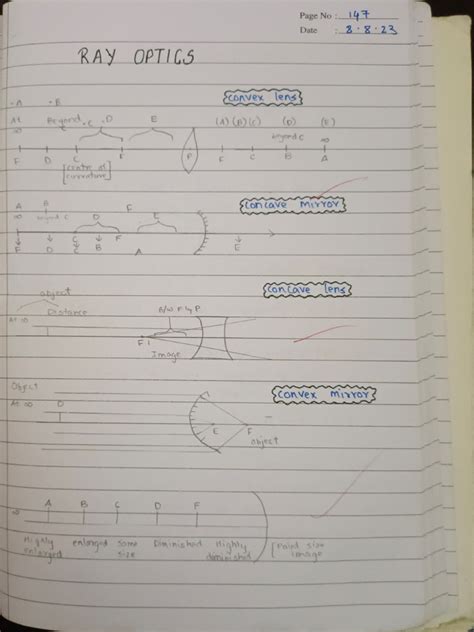 Page No : 147
Date : 8.8.23
RAY OPTICS
convex lens
.A .B
At Beyond .C .D E (A) (B) (C) (D) (E)
∞ beyond C ∞
F D C F P F C B A
[centre of
curvature]
concave mirror
A B F
∞ beyond C D E
C F
F D C B A E
concave lens
object
Distance B/W F & P
At ∞
F1
Image
convex mirror
Object
At ∞ D
E F
object
A B C D F
∞
Highly enlarged Same Diminished Highly [Point size
enlarged size diminished image